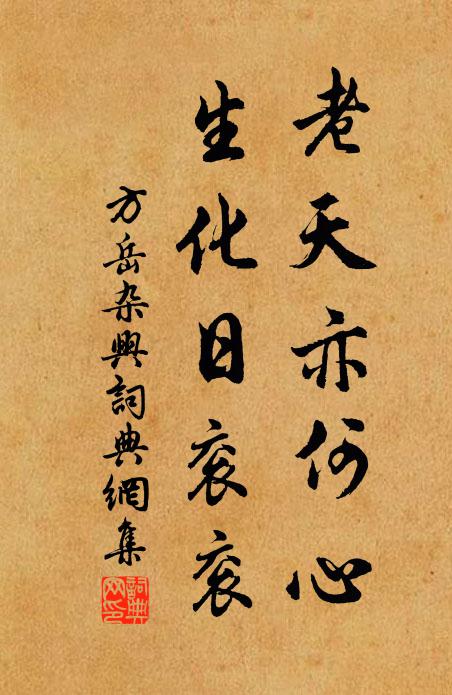 老天亦何心
生化日衮衮
方岳杂興詞典網集
詞典
网印